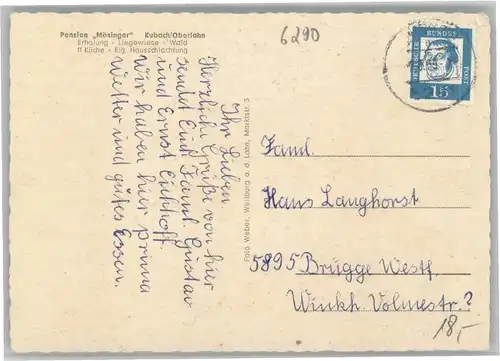 Pension „Mösinger" Kubach/Oberlahn
Erholung - Liegewiese - Wald
ff Küche - Eig. Hausschlachtung
6290
DEUTSCHE
BUNDES
POST
15
Ihr Lieben
Herzliche Grüße von hier
sendet Euch Faml. Gustav
und Ernst Eickhoff.
Wir haben hier prima
Wetter und gutes Essen.
Foto Weber, Weilburg a. d. Lahn, Marktstr. 3
Faml.
Hans Langhorst
5895 Brügge Westf.
Winkh. Volmestr. ?
18,-